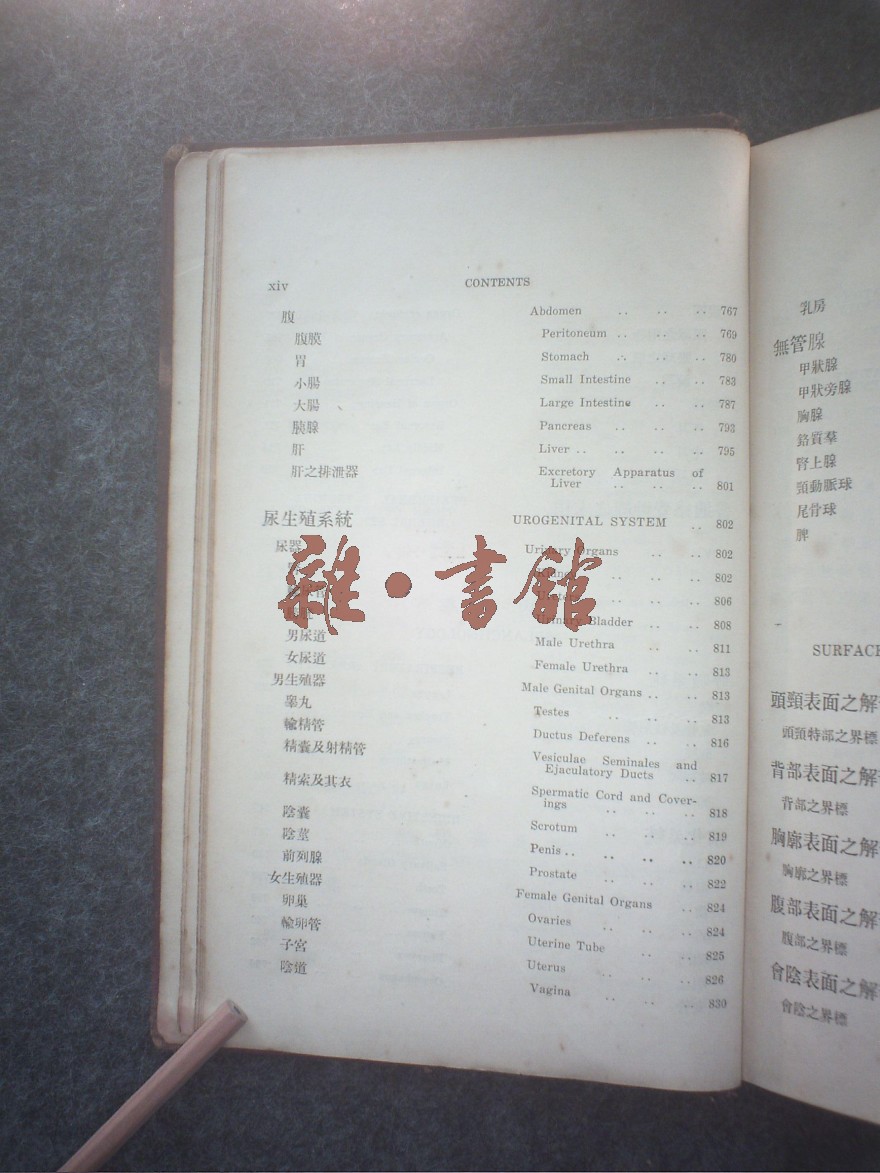 xiv CONTENTS
腹 Abdomen .. .. .. 767
腹膜 Peritoneum .. .. .. 769
胃 Stomach .. .. .. 780
小腸 Small Intestine .. .. 783
大腸 Large Intestine .. .. 787
胰腺 Pancreas .. .. .. 793
肝 Liver .. .. .. .. 795
肝之排泄器 Excretory Apparatus of
Liver .. .. .. 801
尿生殖系統 UROGENITAL SYSTEM .. 802
尿器 Urinary Organs .. .. 802
.. .. .. 802
.. .. .. 806
Urinary Bladder .. .. 808
男尿道 Male Urethra .. .. 811
女尿道 Female Urethra .. .. 813
男生殖器 Male Genital Organs .. .. 813
睾丸 Testes .. .. .. 813
輸精管 Ductus Deferens .. .. 816
精囊及射精管 Vesiculae Seminales and
Ejaculatory Ducts .. .. 817
精索及其衣 Spermatic Cord and Cover-
ings .. .. .. 818
陰囊 Scrotum .. .. .. 819
陰莖 Penis .. .. .. .. 820
前列腺 Prostate .. .. .. 822
女生殖器 Female Genital Organs .. 824
卵巢 Ovaries .. .. .. 824
輸卵管 Uterine Tube .. .. 825
子宮 Uterus .. .. .. 826
陰道 Vagina .. .. .. 830
雜·書館
乳房
無管腺
甲狀腺
甲狀旁腺
胸腺
鉻質羣
腎上腺
頸動脈球
尾骨球
脾
SURFACE
頭頸表面之解
頭頸特部之界標
背部表面之解
背部之界標
胸廓表面之解
胸廓之界標
腹部表面之解
腹部之界標
會陰表面之解
會陰之界標